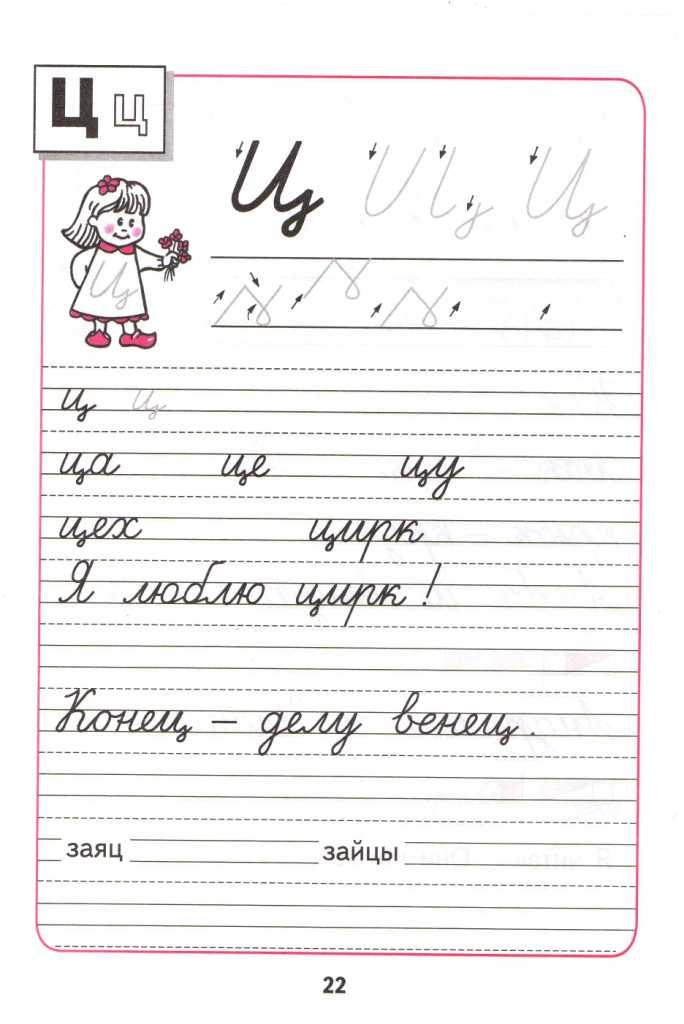 Ц ц
Ц Ц Ц
Ц
ц ц
ца це цу
цех цирк
Я люблю цирк!
Конец – делу венец.
заяц зайцы
22